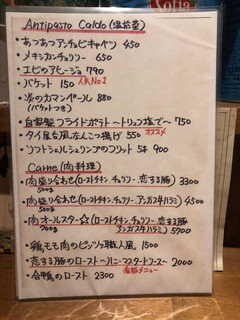 Antipasto Caldo (温前菜)
・あつあつアンチョビキャベツ 450
・メキシカンチョリソー 650
・エビのアヒージョ 790
人気No1
・バケット 150
・炎のカマンベール 880
(バケットつき)
・自家製フライドポテト〜トリュフ塩で〜 750
・タイ屋台風なんこつ揚げ 550 オススメ
・ソフトシェルシュリンプのフリット 5本 900
Carne (肉料理)
・肉盛り合わせ(ローストチキン、チョリソー、恋する豚) 3300
500g
・肉盛り合わせ(ローストチキン、チョリソー、アンガス牛ハラミ) 4500
500g
・肉オールスター☆(ローストチキン、チョリソー、恋する豚
700g アンガス牛ハラミ) 5700
・鶏モモ肉のピッツァ職人風 1500
・恋する豚のロースト〜ハニーマスタードソース〜 2000
看板メニュー
・合鴨のロースト 2300